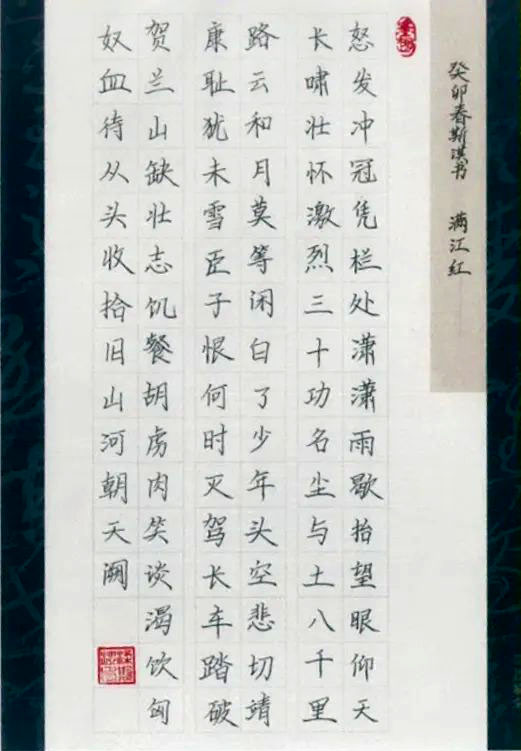 癸卯春斯淇书 满江红
怒发冲冠凭栏处潇潇雨歇抬望眼仰天
长啸壮怀激烈三十功名尘与土八千里
路云和月莫等闲白了少年头空悲切靖
康耻犹未雪臣子恨何时灭驾长车踏破
贺兰山缺壮志饥餐胡虏肉笑谈渴饮匈
奴血待从头收拾旧山河朝天阙